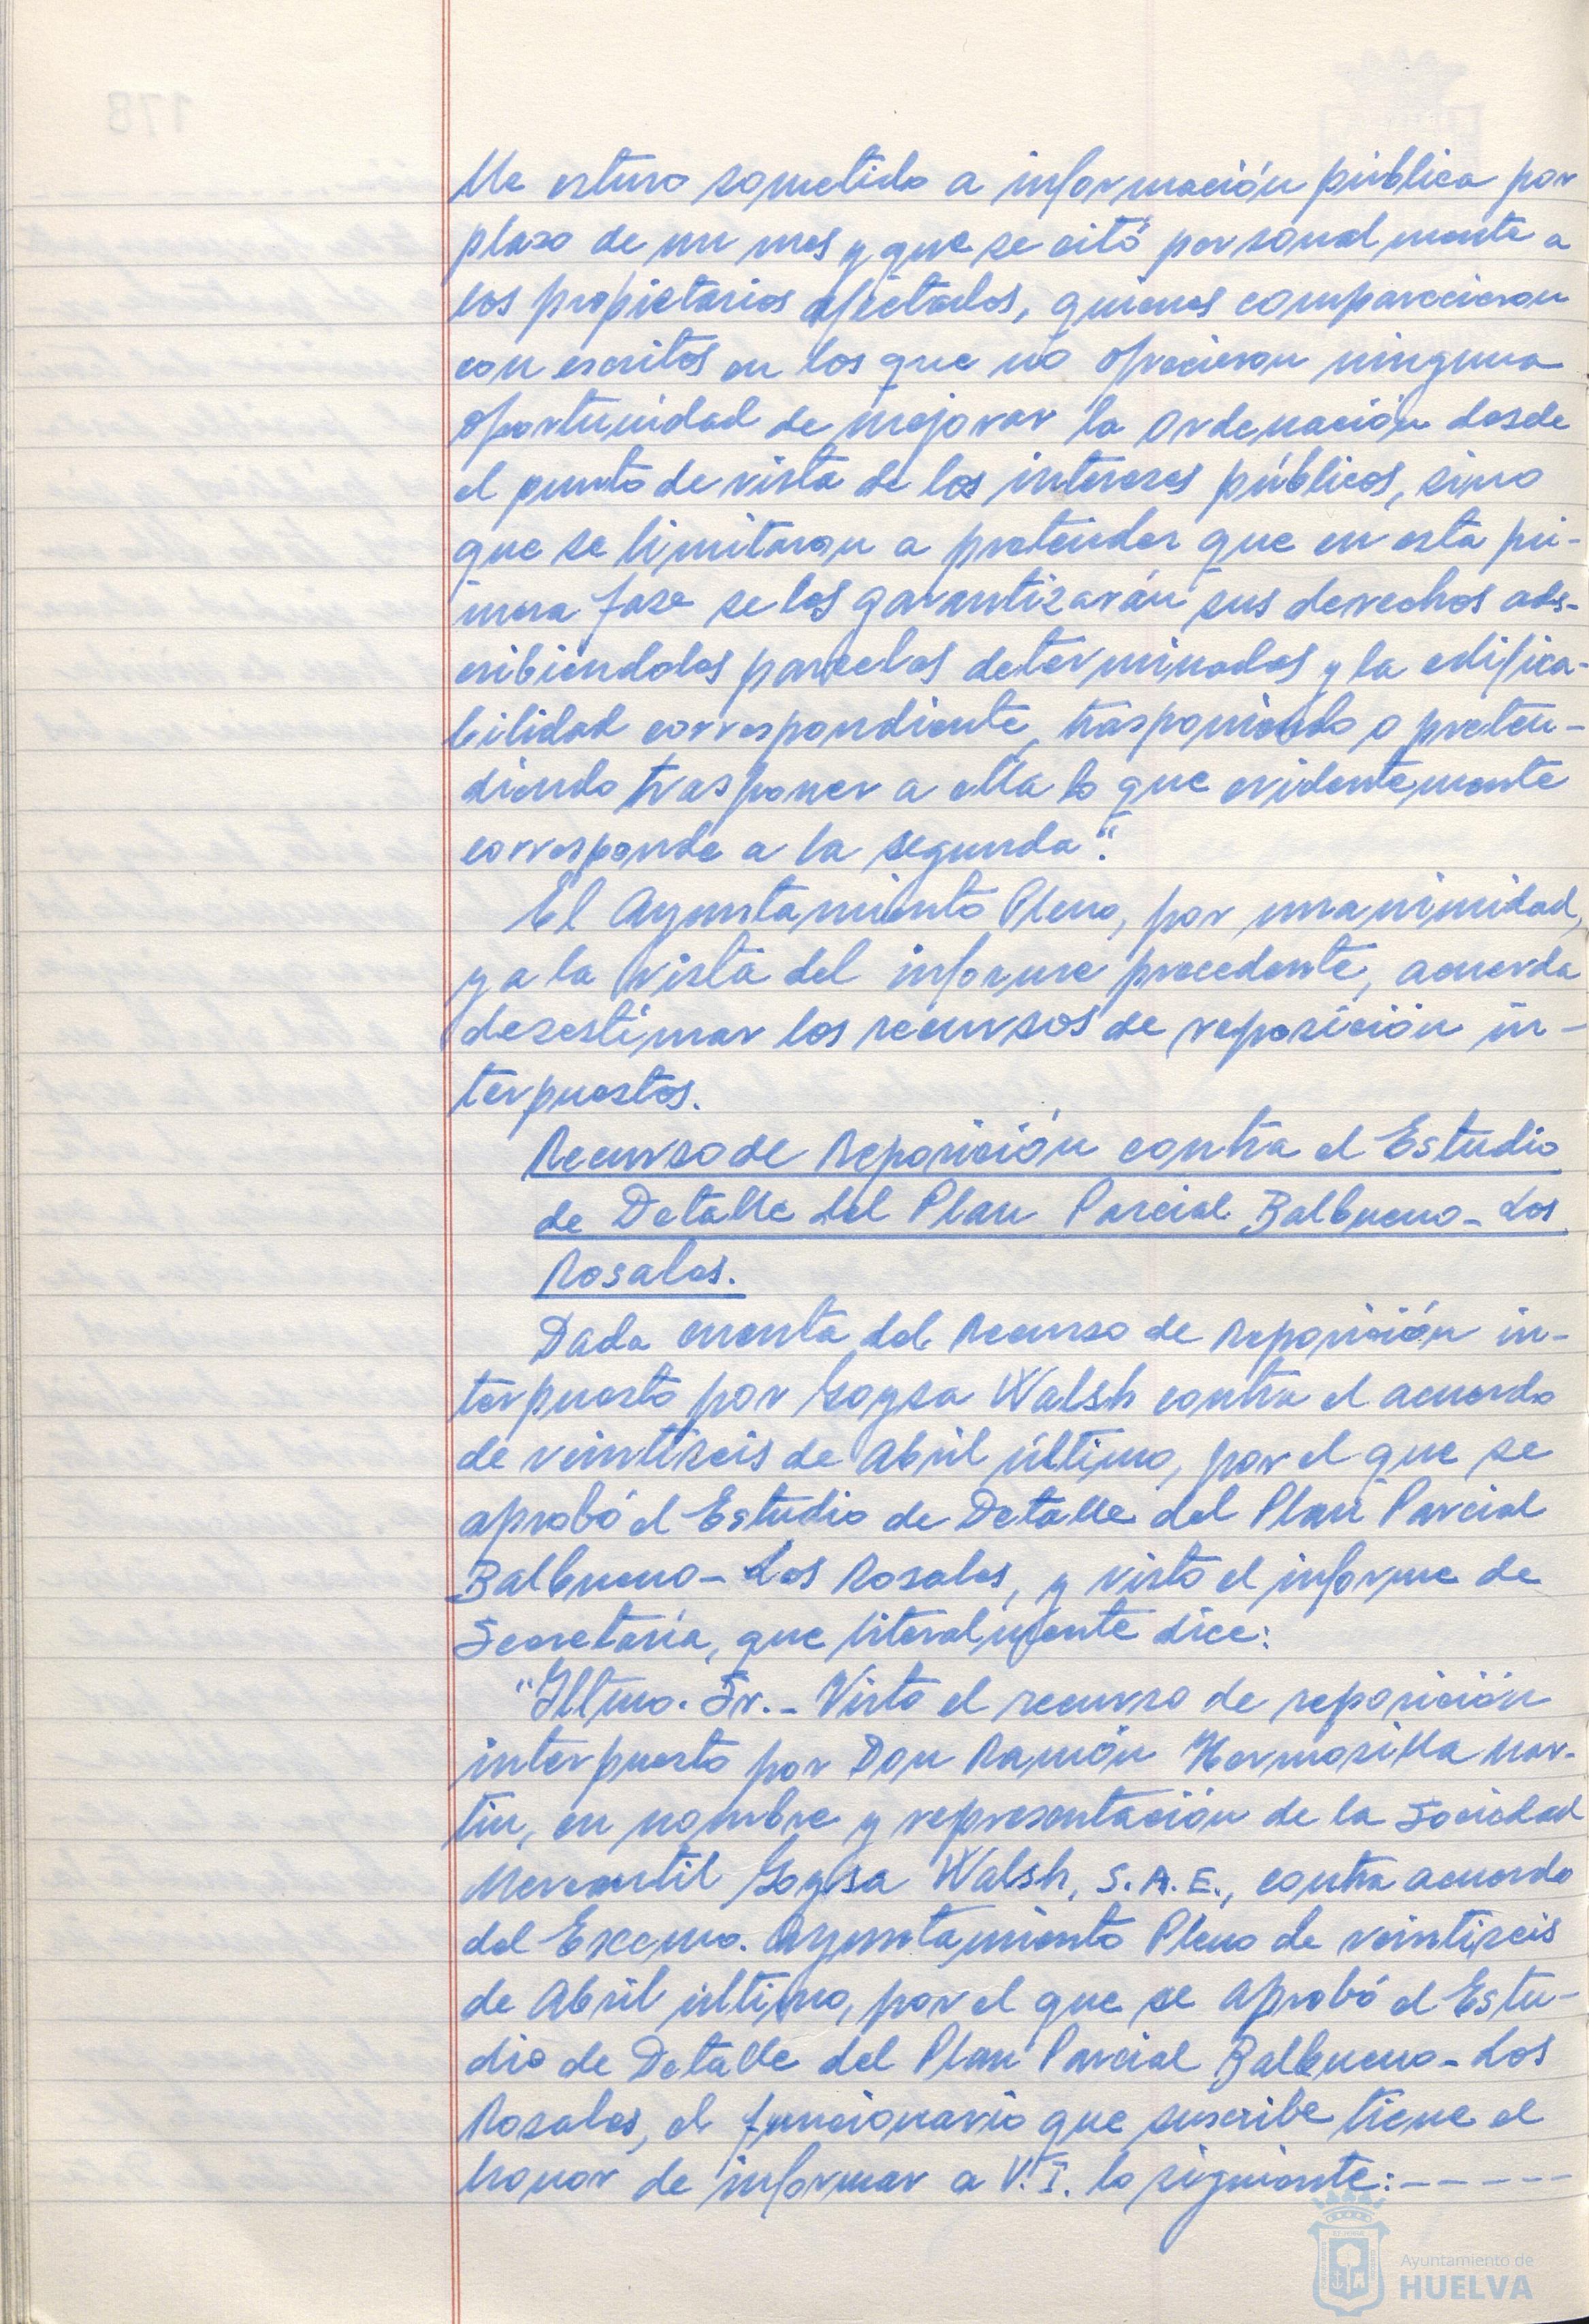 lle estuvo sometido a información pública por
plazo de un mes y que se citó personalmente a
los propietarios afectados, quienes comparecieron
con escritos en los que no ofrecieron ninguna
oportunidad de mejorar la ordenación desde
el punto de vista de los intereses públicos, sino
que se limitaron a pretender que en esta pri-
mera fase se les garantizarán sus derechos ads-
cribiéndoles parcelas determinadas y la edifica-
bilidad correspondiente, trasponiendo o preten-
diendo trasponer a ella lo que evidentemente
corresponde a la segunda".
El Ayuntamiento Pleno, por unanimidad,
y a la vista del informe precedente, acuerda
desestimar los recursos de reposición in-
terpuestos.
Recurso de Reposición contra el Estudio
de Detalle del Plan Parcial Balbueno-Los
Rosales.
Dada cuenta del Recurso de Reposición in-
terpuesto por Goysa Walsh contra el acuerdo
de veintiseis de Abril último, por el que se
aprobó el Estudio de Detalle del Plan Parcial
Balbueno-Los Rosales, y visto el informe de
Secretaría, que literalmente dice:
"Iltmo. Sr.- Visto el recurso de reposición
interpuesto por Don Ramón Hermosilla Mar-
tin, en nombre y representación de la Sociedad
Mercantil Goysa Walsh, S.A.E., contra acuerdo
del Excmo. Ayuntamiento Pleno de veintiseis
de Abril último, por el que se aprobó el Estu-
dio de Detalle del Plan Parcial Balbueno-Los
Rosales, el funcionario que suscribe tiene el
honor de informar a V.I. lo siguiente:-----
Ayuntamiento de
HUELVA